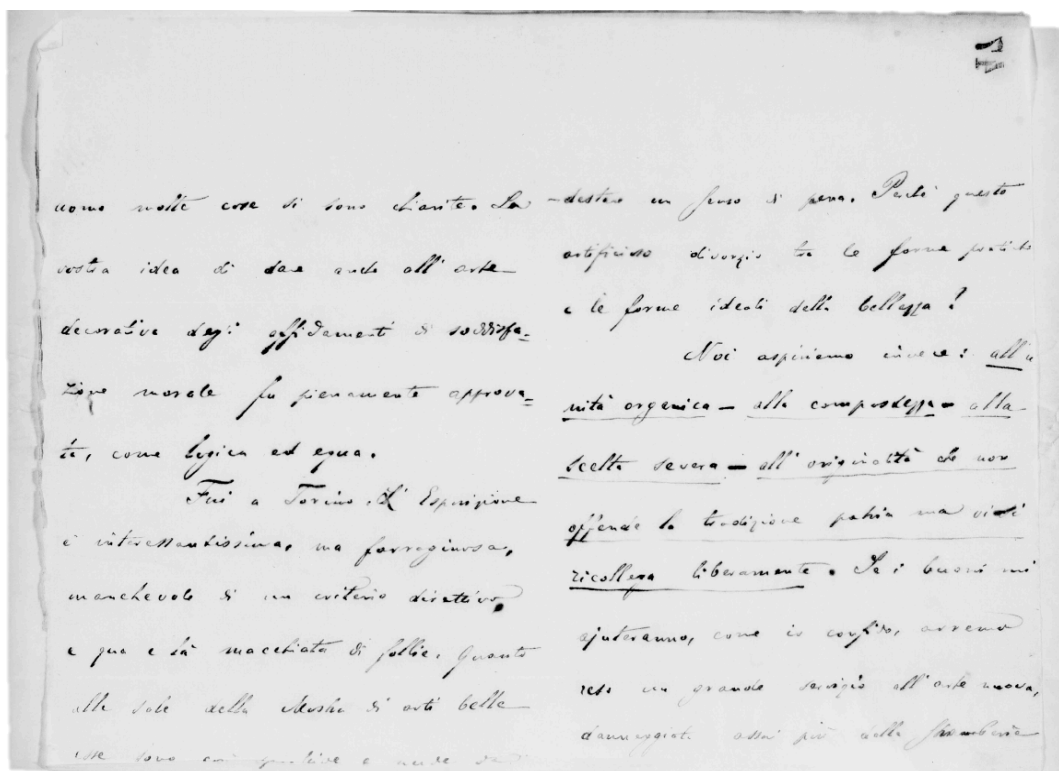 uomo molte cose si sono chiarite. La
vostra idea di dare anche all'arte
decorativa degli affidamenti di soddisfa=
zione morale fu pienamente approva=
ta, come logica ed equa.
Fui a Torino. L'Esposizione
è interessantissima, ma farraginosa,
manchevole di un criterio direttivo,
e qua e là macchiata di follie. Quanto
alle sale della Mostra di arti belle
esse sono così e nude da
destare un senso di pena. Perché questo
artificioso divorzio tra le forme pratiche
e le forme ideali della bellezza?
Noi aspiriamo invece: all'u
nità organica – alla compostezza – alla
scelta severa – all'originalità che non
offende la tradizione patria ma vi si
ricollega liberamente. Se i buoni mi
ajuteranno, come io confido, avremo
reso un grande servigio all'arte nuova,
danneggiata assai più dalle